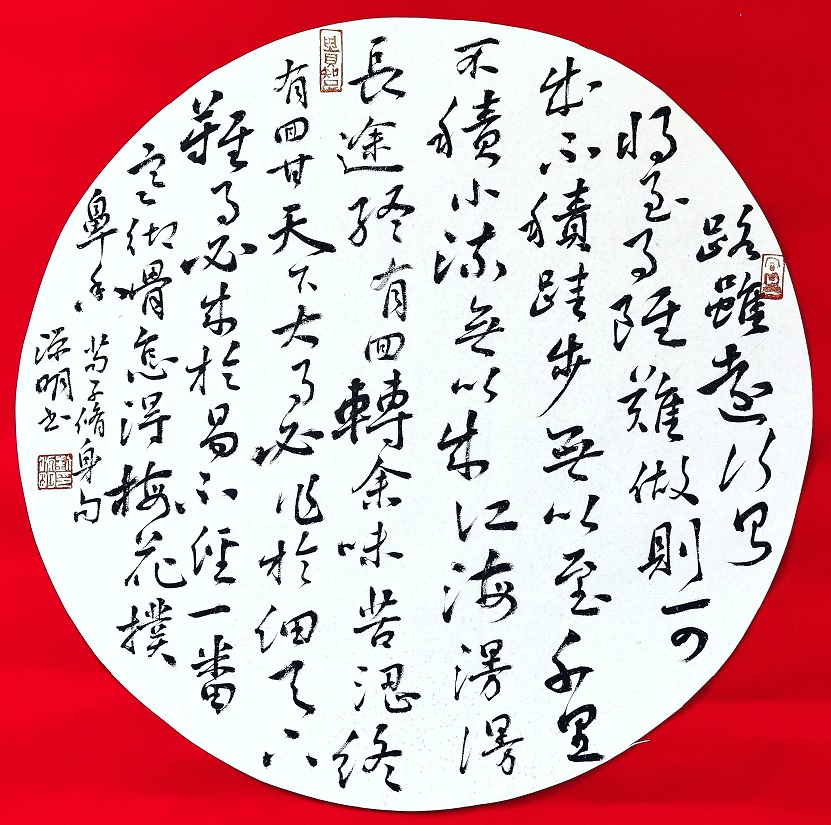 路雖遠行則
將至事雖難做則可
成不積跬步無以至千里
不積小流無以成江海漫漫
長途終有回轉余味苦澀終
有回甘天下大事必作於細天下
難事必成於易不經一番
寒徹骨怎得梅花撲
鼻香
荀子脩身句
深明書